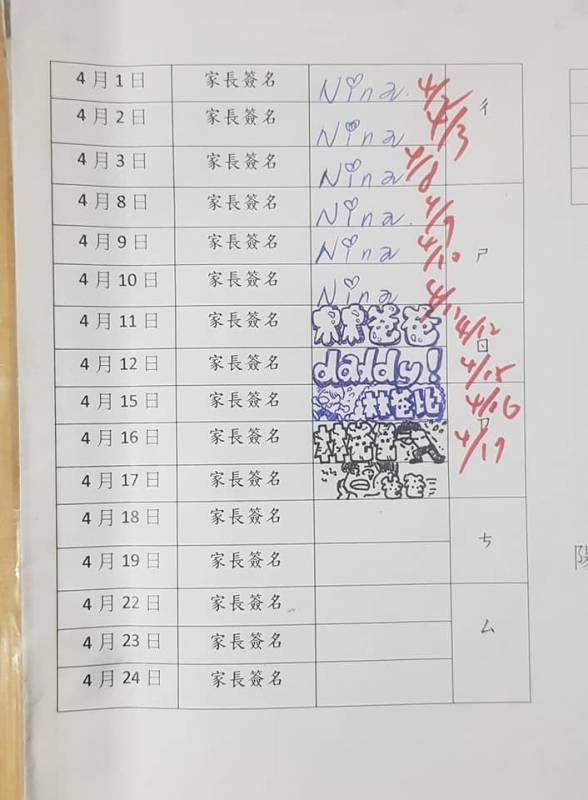 4 月 1 日 家長簽名 Nina 4/2 ㄔ
4 月 2 日 家長簽名 Nina 4/3
4 月 3 日 家長簽名 Nina 4/8
4 月 8 日 家長簽名 Nina 4/9
4 月 9 日 家長簽名 Nina 4/10 ㄕ
4 月 10 日 家長簽名 Nina 4/11
4 月 11 日 家長簽名 爸爸 4/12
4 月 12 日 家長簽名 daddy! 4/15 ㄖ
4 月 15 日 家長簽名 林爸比 4/16
4 月 16 日 家長簽名 林爸爸 4/17 ㄗ
4 月 17 日 家長簽名 爸爸
4 月 18 日 家長簽名
4 月 19 日 家長簽名 ㄘ
4 月 22 日 家長簽名
4 月 23 日 家長簽名 ㄙ
4 月 24 日 家長簽名